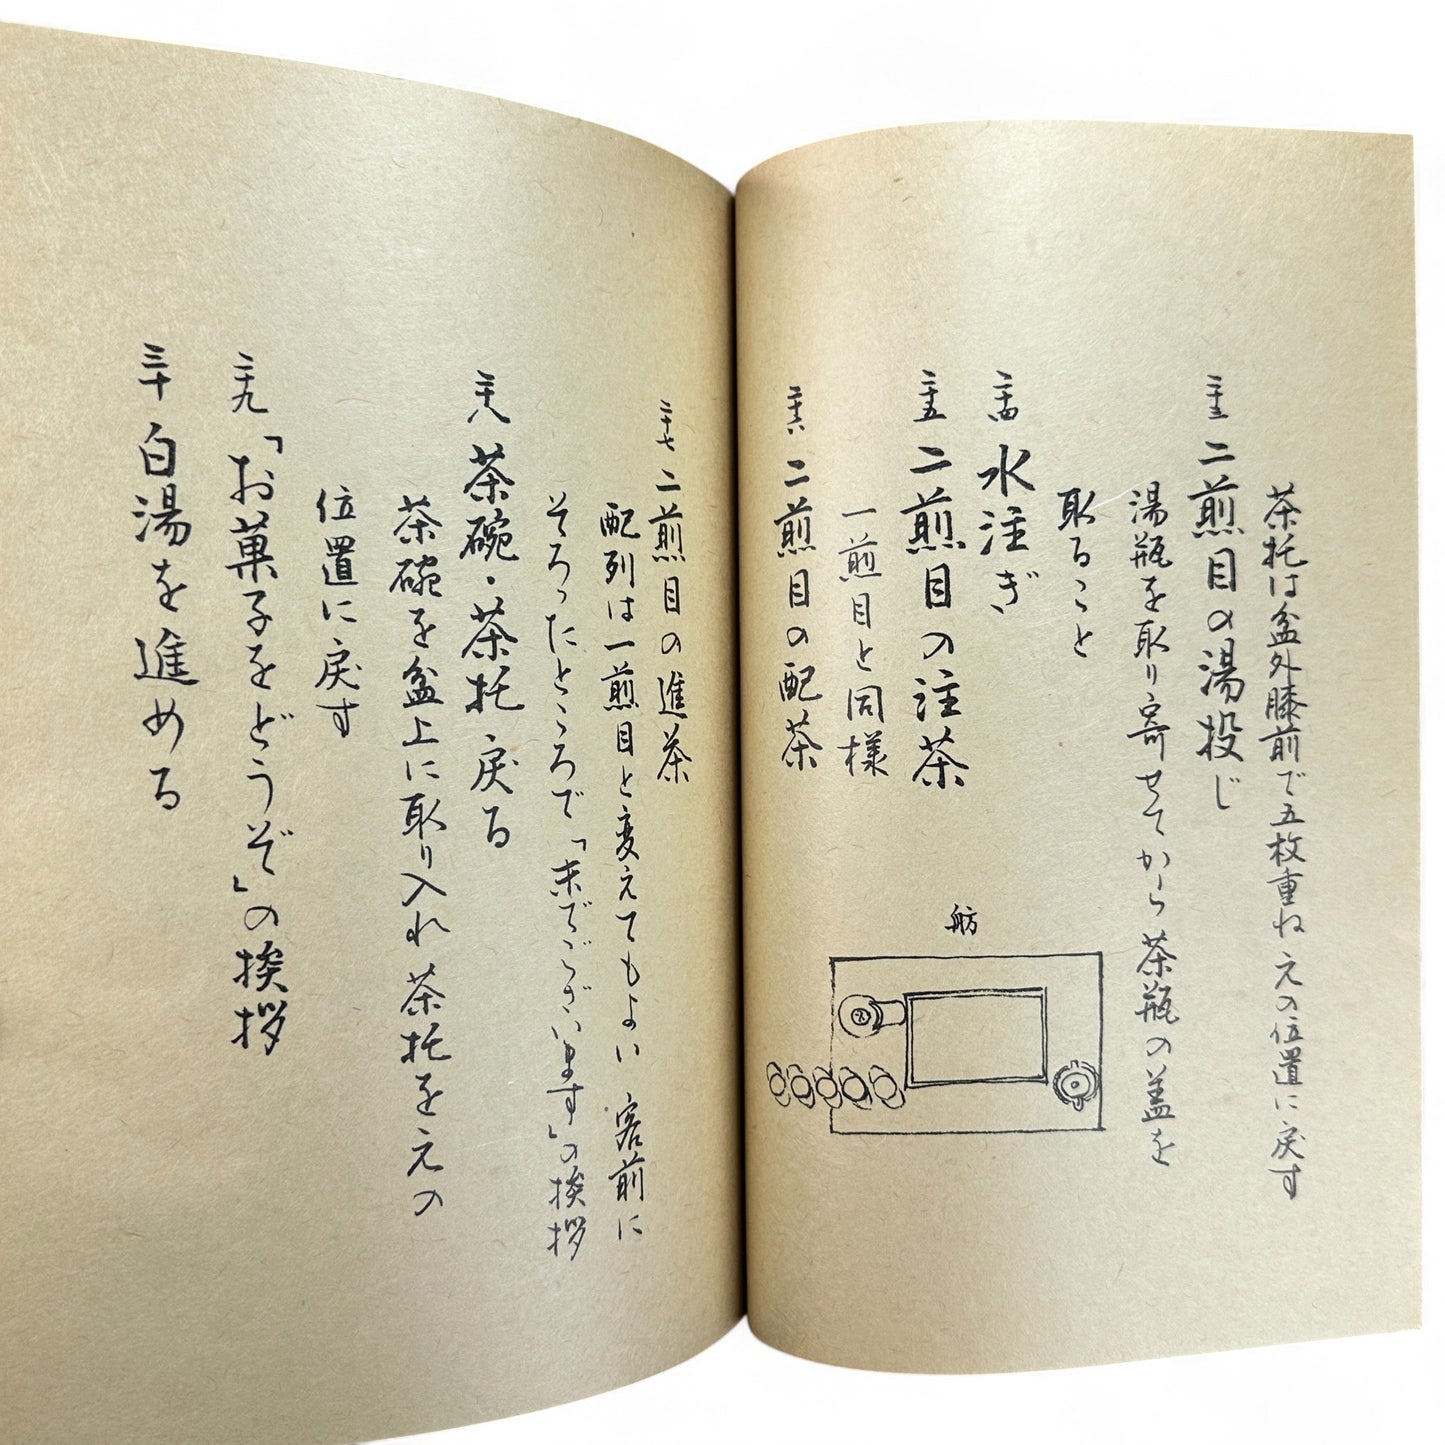 茶托は盆外膝前で五枚重ね元の位置に戻す
二十三 二煎目の湯投じ
湯瓶を取り寄せてから茶瓶の蓋を
取ること
二十四 水注ぎ
二十五 二煎目の注茶
一煎目と同様
二十六 二煎目の配茶
舫
二十七 二煎目の進茶
配列は一煎目と変えてもよい 客前に
そろったところで「末でございます」の挨拶
二十八 茶碗・茶托戻る
茶碗を盆上に取り入れ茶托を元の
位置に戻す
二十九 「お菓子をどうぞ」の挨拶
三十 白湯を進める